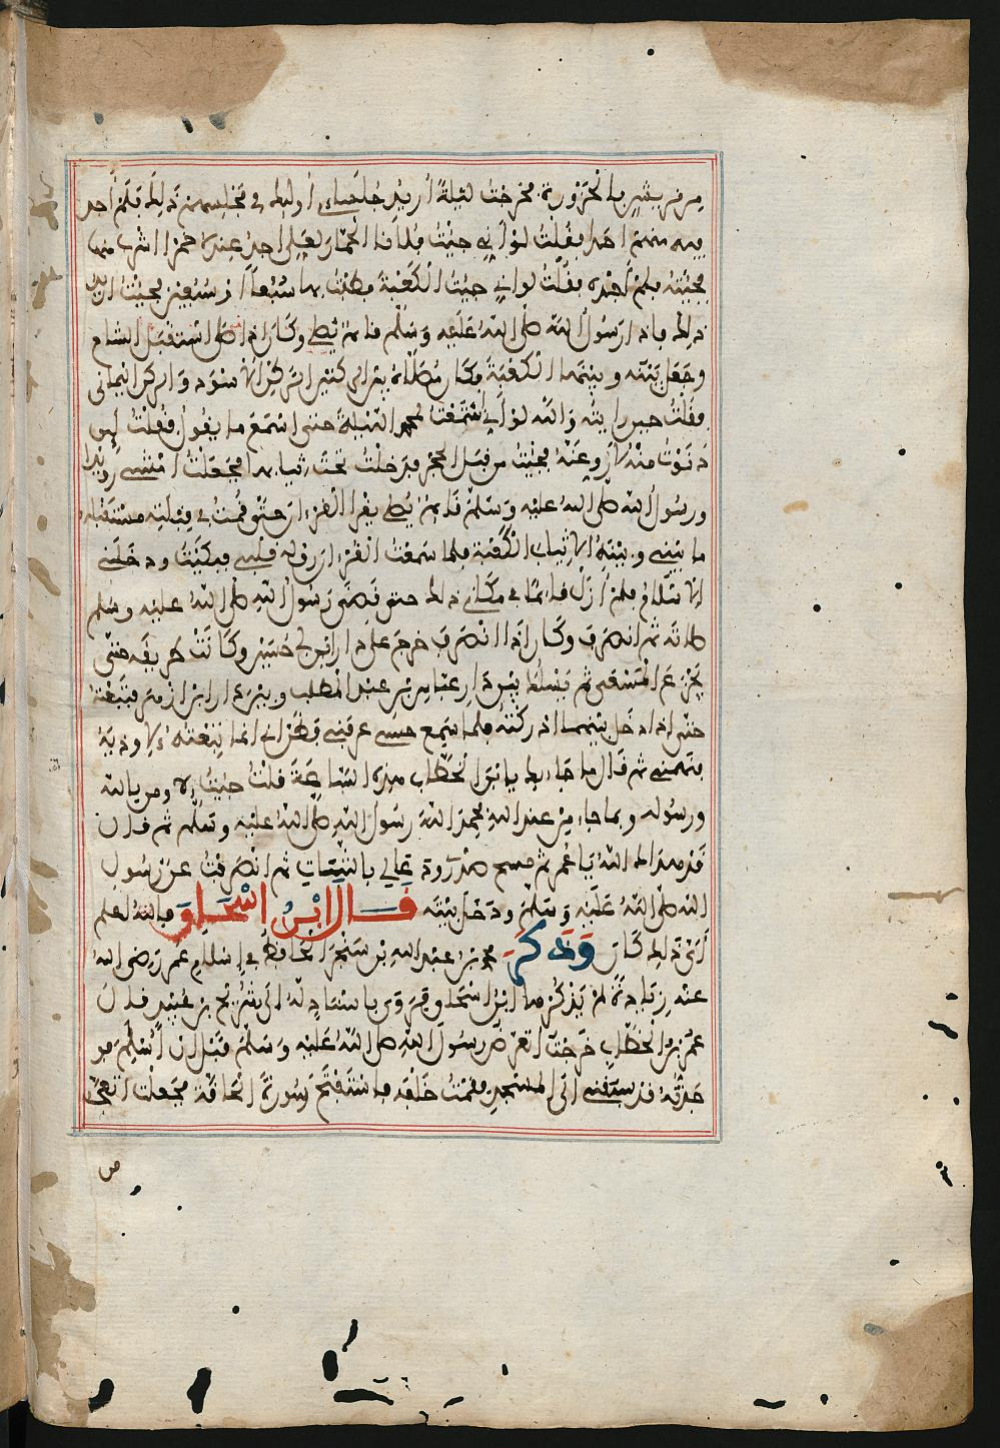 من قريش بالحزورة فخرجت ليلة أريد جلساءي أوليك في مجلسهم ذلك فلم أجد
فيه منهم احدا فقلت لو أني جيت فلانا الخمار لعلي اجد عنده خمرا اشرب منها
فجيته فلم أجده فقلت لو اني جيت الكعبة فطفت بها سبعا أو سبعين فجيت اريد
ذلك فاذا رسول الله صلى الله عليه وسلم قايم يصلي وكان اذا صلى استقبل الشام
وجعل بينه وبينها الكعبة فكان مصلاه بين الركنين الركن الاسود والركن اليماني
فقلت حين رايته والله لو أني استمعت لمحمد الليلة حتى اسمع ما يقول فقلت لين
دنوت منه لأروعنه فجيت من قبل الحجر فدخلت تحت ثيابها فجعلت امشي رويدا
ورسول الله صلى الله عليه وسلم قايم يصلي يقرا القرءان حتى قمت في قبلته مستقبله
ما بيني وبينه الا ثياب الكعبة فلما سمعت القرءان رق له قلبي فبكيت ودخلني
الاسلام فلم أزل قايما في مكاني ذلك حتى قضى رسول الله صلى الله عليه وسلم
صلاته ثم انصرف وكان إذا انصرف خرج على دار ابن أبي حسين وكانت طريقه حتى
يجزع المسعى ثم يسلك بين دار عباس بن عبد المطلب وبين دار ابن ازهر فتبعته
حتى إذا دخل بينهما ادركته فلما سمع حسي عرفني فظن اني انما تبعته لاوذيه
فنهمني ثم قال ما جاء بك يا بن الخطاب هذه الساعة قلت جيت لاومن بالله
ورسوله وبما جاء من عند الله فحمد الله رسول الله صلى الله عليه وسلم ثم قال
قد هداك الله يا عمر ثم مسح صدري ودعا لي بالثبات ثم انصرفت عن رسول
الله صلى الله عليه وسلم ودخل بيته قال ابن اسحاق فالله اعلم
أي ذلك كان وذكر محمد بن عبد الله بن سنجر الحافظ في إسلام عمر رضي الله
عنه زيادة لم يذكرها ابن اسحاق فروى باسناد له الى شريح بن عبيد قال
عمر بن الخطاب خرجت أتعرض رسول الله صلى الله عليه وسلم قبل ان أسلم فو
جدته قد سبقني الى المسجد فقمت خلفه فاستفتح سورة الحاقة فجعلت اتعجب